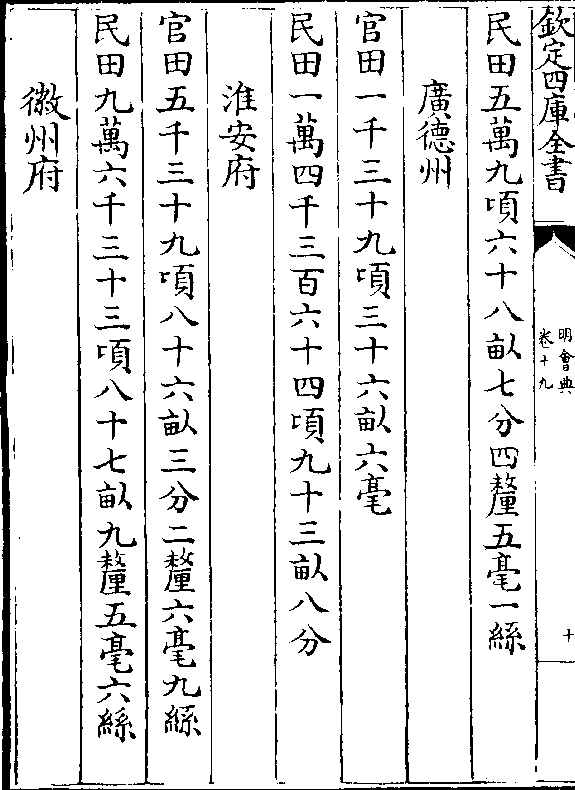 欽定四庫全書
明會典
卷十九
十
民田五萬九頃六十八畝七分四釐五毫一絲
廣德州
官田一千三十九頃三十六畝六毫
民田一萬四千三百六十四頃九十三畝八分
淮安府
官田五千三十九頃八十六畝三分二釐六毫九絲
民田九萬六千三十三頃八十七畝九釐五毫六絲
徽州府